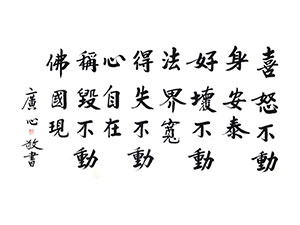 喜怒不動
身安泰
好壞不動
法界寬
得失不動
心自在
稱毀不動
佛國現
廣心敬書